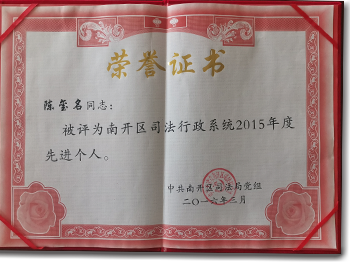 荣誉证书
陈玺名同志：
被评为南开区司法行政系统2015年度
先进个人。
中共南开区司法局党组
二〇一六年三月